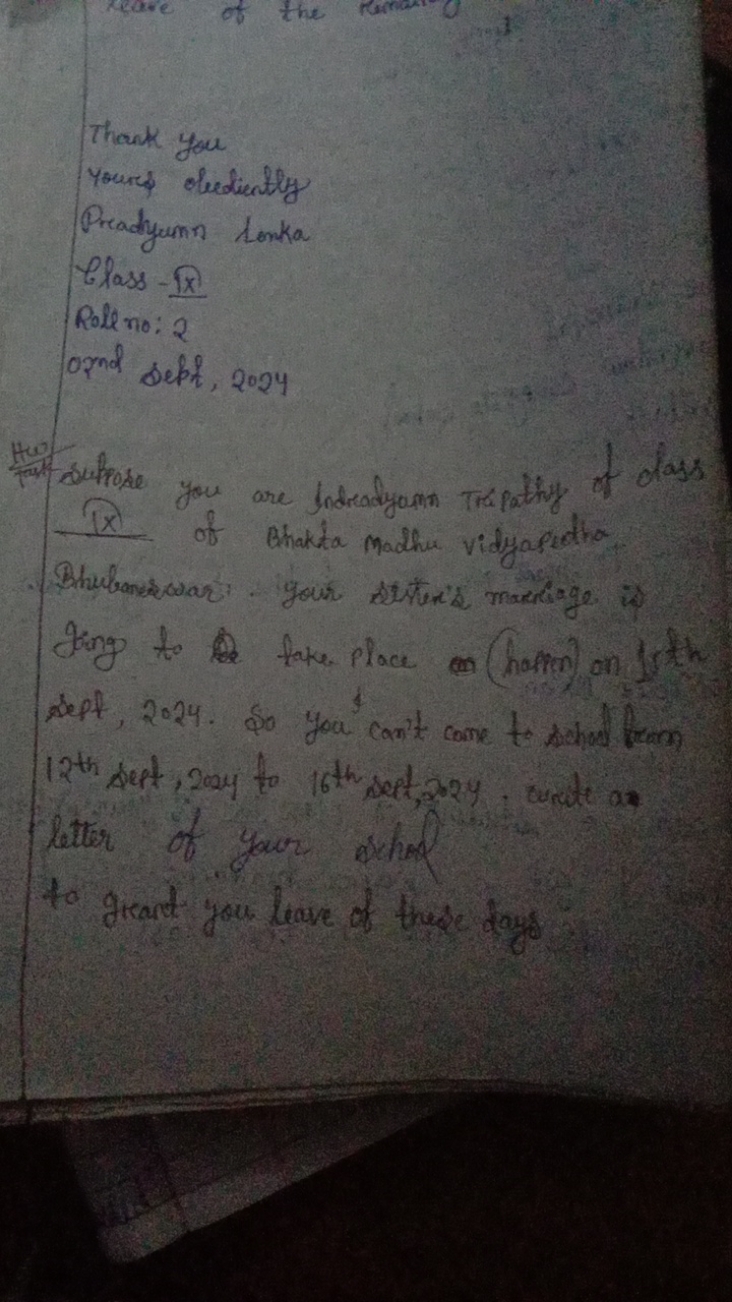 leave of the remaining
Thank you
Yours obediently
Preadyumn Lenka
Class - IX
Roll no: 2
02nd Sept, 2024
HW
Suppose you are Indreadyumn Tripathy of class
IX of Bhakta Madhu vidyapedha
Bhubaneswar. Your sister's marriage is
going to take place (happen) on 15th
Sept, 2024. So you can't come to school from
12th Sept, 2024 to 16th Sept, 2024. write a
letter of your school
to greant you leave of these days